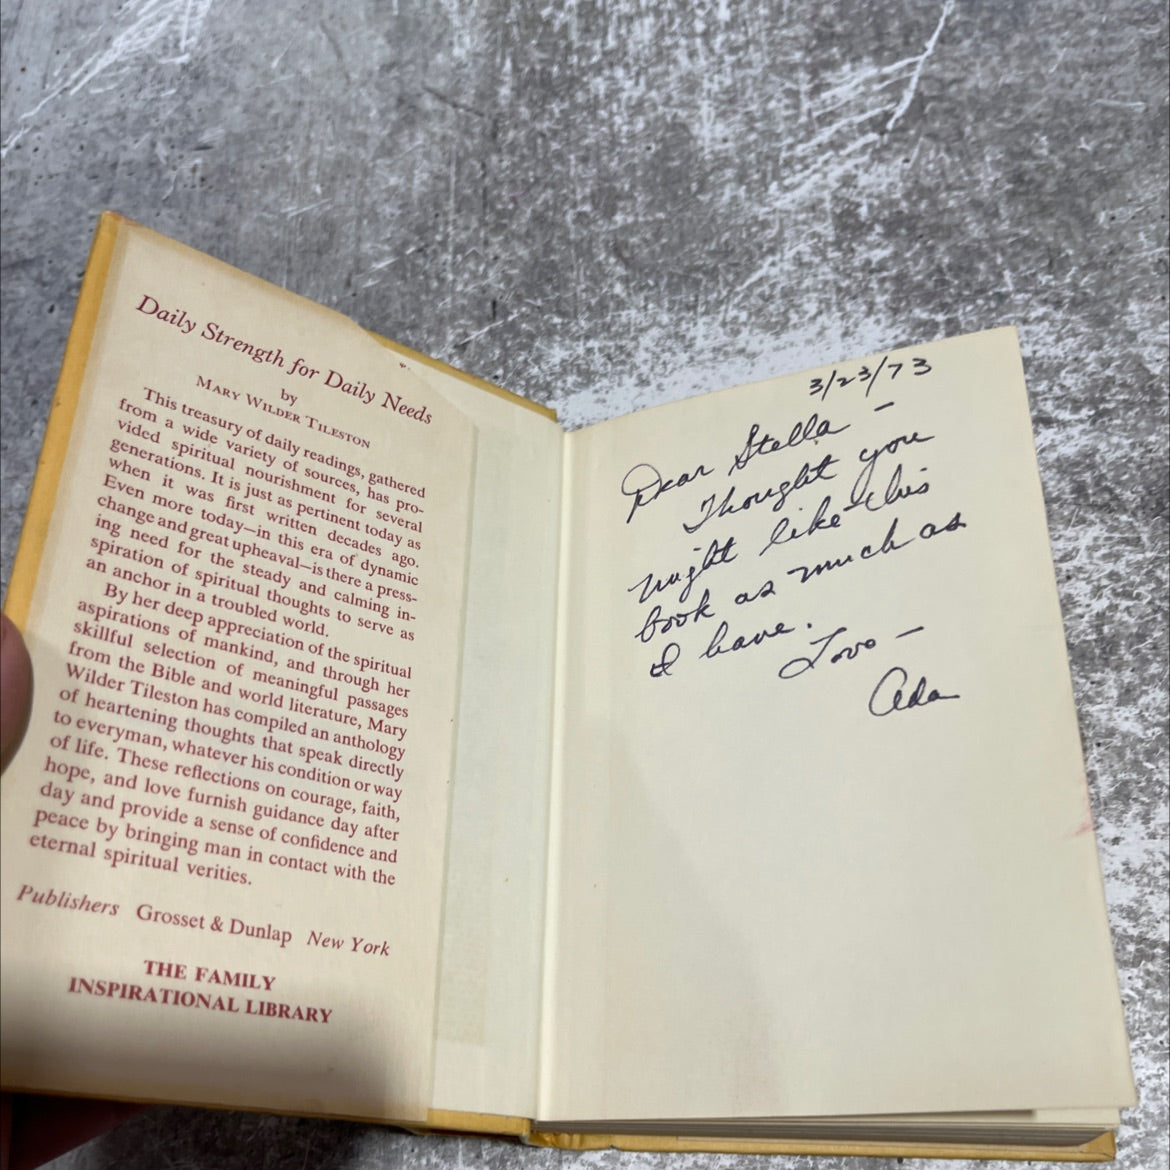 Daily Strength for Daily Needs
by
MARY WILDER TILESTON
This treasury of daily readings, gathered
from a wide variety of sources, has pro-
vided spiritual nourishment for several
generations. It is just as pertinent today as
when it was first written decades ago.
Even more today—in this era of dynamic
change and great upheaval—is there a press-
ing need for the steady and calming in-
spiration of spiritual thoughts to serve as
an anchor in a troubled world.
By her deep appreciation of the spiritual
aspirations of mankind, and through her
skillful selection of meaningful passages
from the Bible and world literature, Mary
Wilder Tileston has compiled an anthology
of heartening thoughts that speak directly
to everyman, whatever his condition or way
of life. These reflections on courage, faith,
hope, and love furnish guidance day after
day and provide a sense of confidence and
peace by bringing man in contact with the
eternal spiritual verities.
Publishers Grosset & Dunlap New York
THE FAMILY
INSPIRATIONAL LIBRARY
3/23/73
Dear Stella –
Thought you
might like this
book as much as
I have.
Love –
Ada